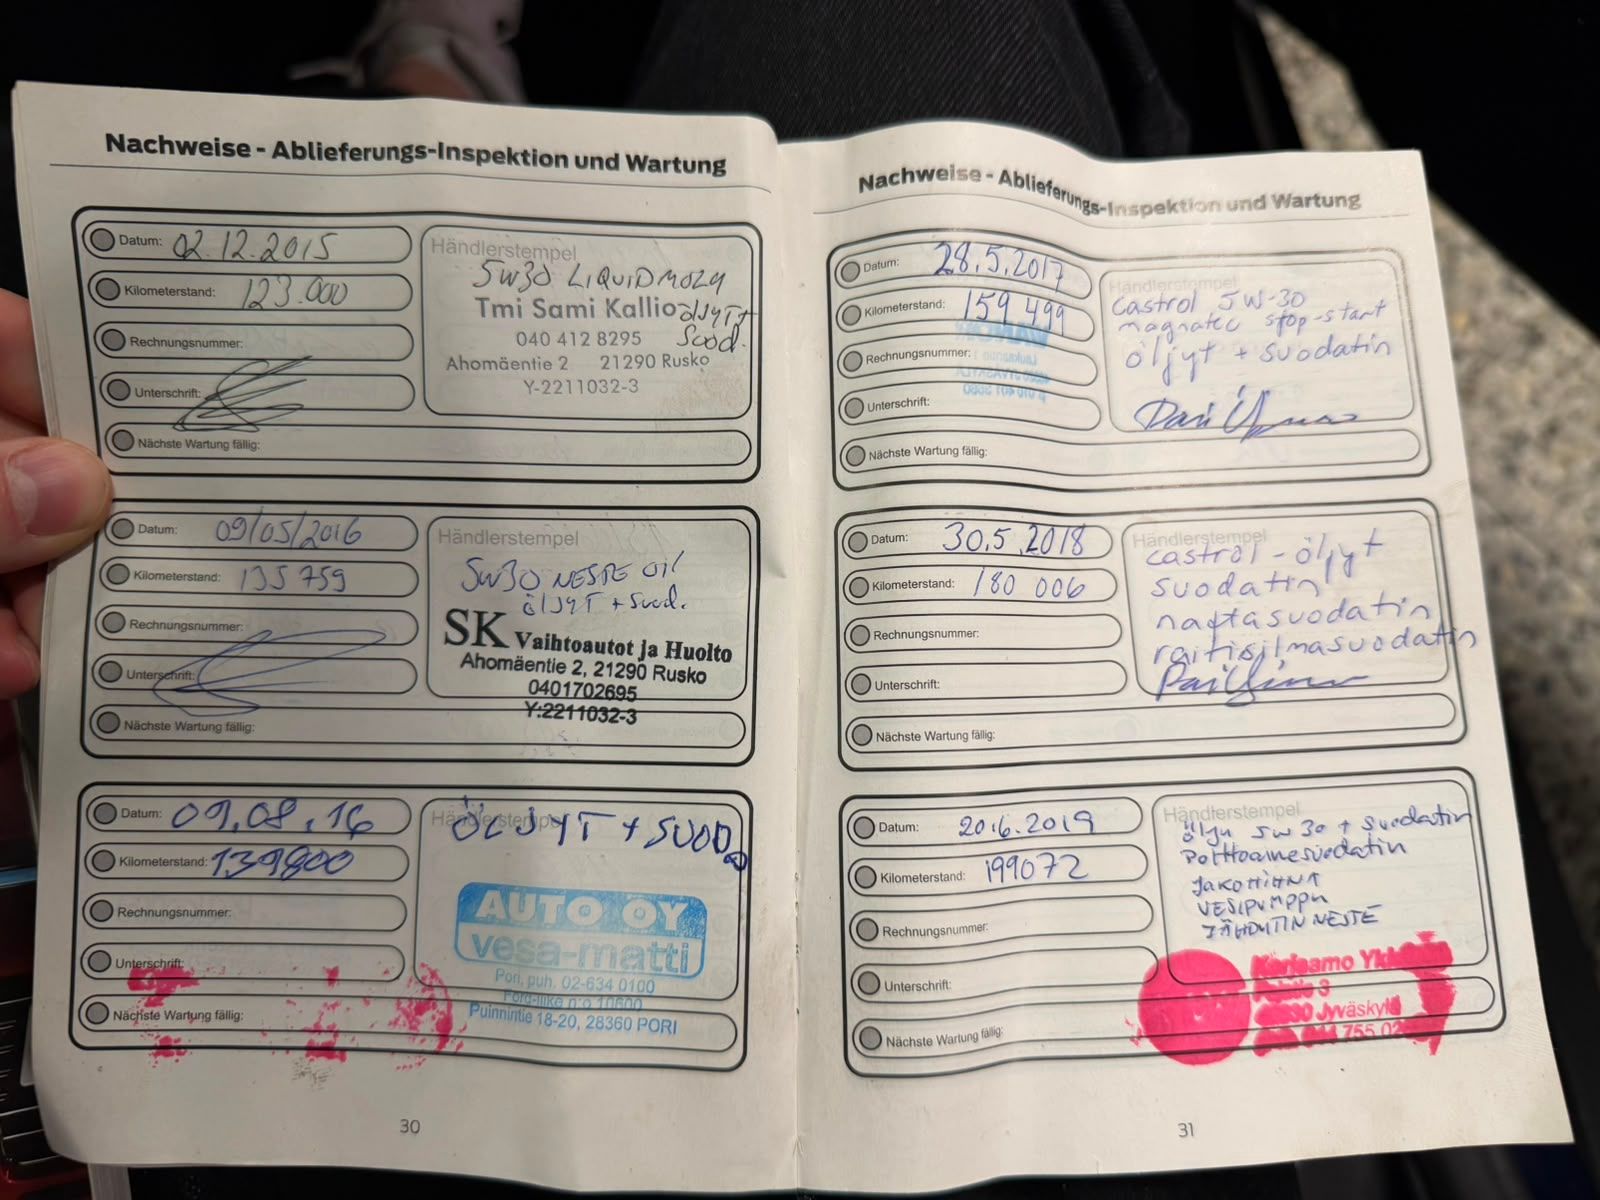 Nachweise - Ablieferungs-Inspektion und Wartung
Datum: 02.12.2015
Kilometerstand: 123.000
Rechnungsnummer:
Unterschrift:
Nächste Wartung fällig:
Händlerstempel
5W30 LIQUID MOLY
Tmi Sami Kallio öljyt +
040 412 8295 Suod.
Ahomäentie 2 21290 Rusko
Y-2211032-3
Datum: 09/05/2016
Kilometerstand: 135 759
Rechnungsnummer:
Unterschrift:
Nächste Wartung fällig:
Händlerstempel
5W30 NESTE OIL
ÖLJYT + Suod.
SK Vaihtoautot ja Huolto
Ahomäentie 2, 21290 Rusko
0401702695
Y:2211032-3
Datum: 09.08.16
Kilometerstand: 139800
Rechnungsnummer:
Unterschrift:
Nächste Wartung fällig:
Händlerstempel
ÖLJYT + SUOD.
AUTO OY
vesa-matti
Pori, puh. 02-634 0100
Ford-liike n:o 10600
Puinnintie 18-20, 28360 PORI
30
Nachweise - Ablieferungs-Inspektion und Wartung
Datum: 28.5.2017
Kilometerstand: 159 499
Rechnungsnummer:
Unterschrift:
Nächste Wartung fällig:
Händlerstempel
Castrol 5W-30
magnatec stop-start
öljyt + suodatin
Datum: 30.5.2018
Kilometerstand: 180 006
Rechnungsnummer:
Unterschrift:
Nächste Wartung fällig:
Händlerstempel
castrol - öljyt
suodatin
naftasuodatin
raitisilmasuodatin
Datum: 20.6.2019
Kilometerstand: 199072
Rechnungsnummer:
Unterschrift:
Nächste Wartung fällig:
Händlerstempel
öljy 5W30 + suodatin
Polttoainesuodatin
JAKOHIHNA
VESIPUMPPU
JÄHDYTIN NESTE
Jyväskylä
755
31